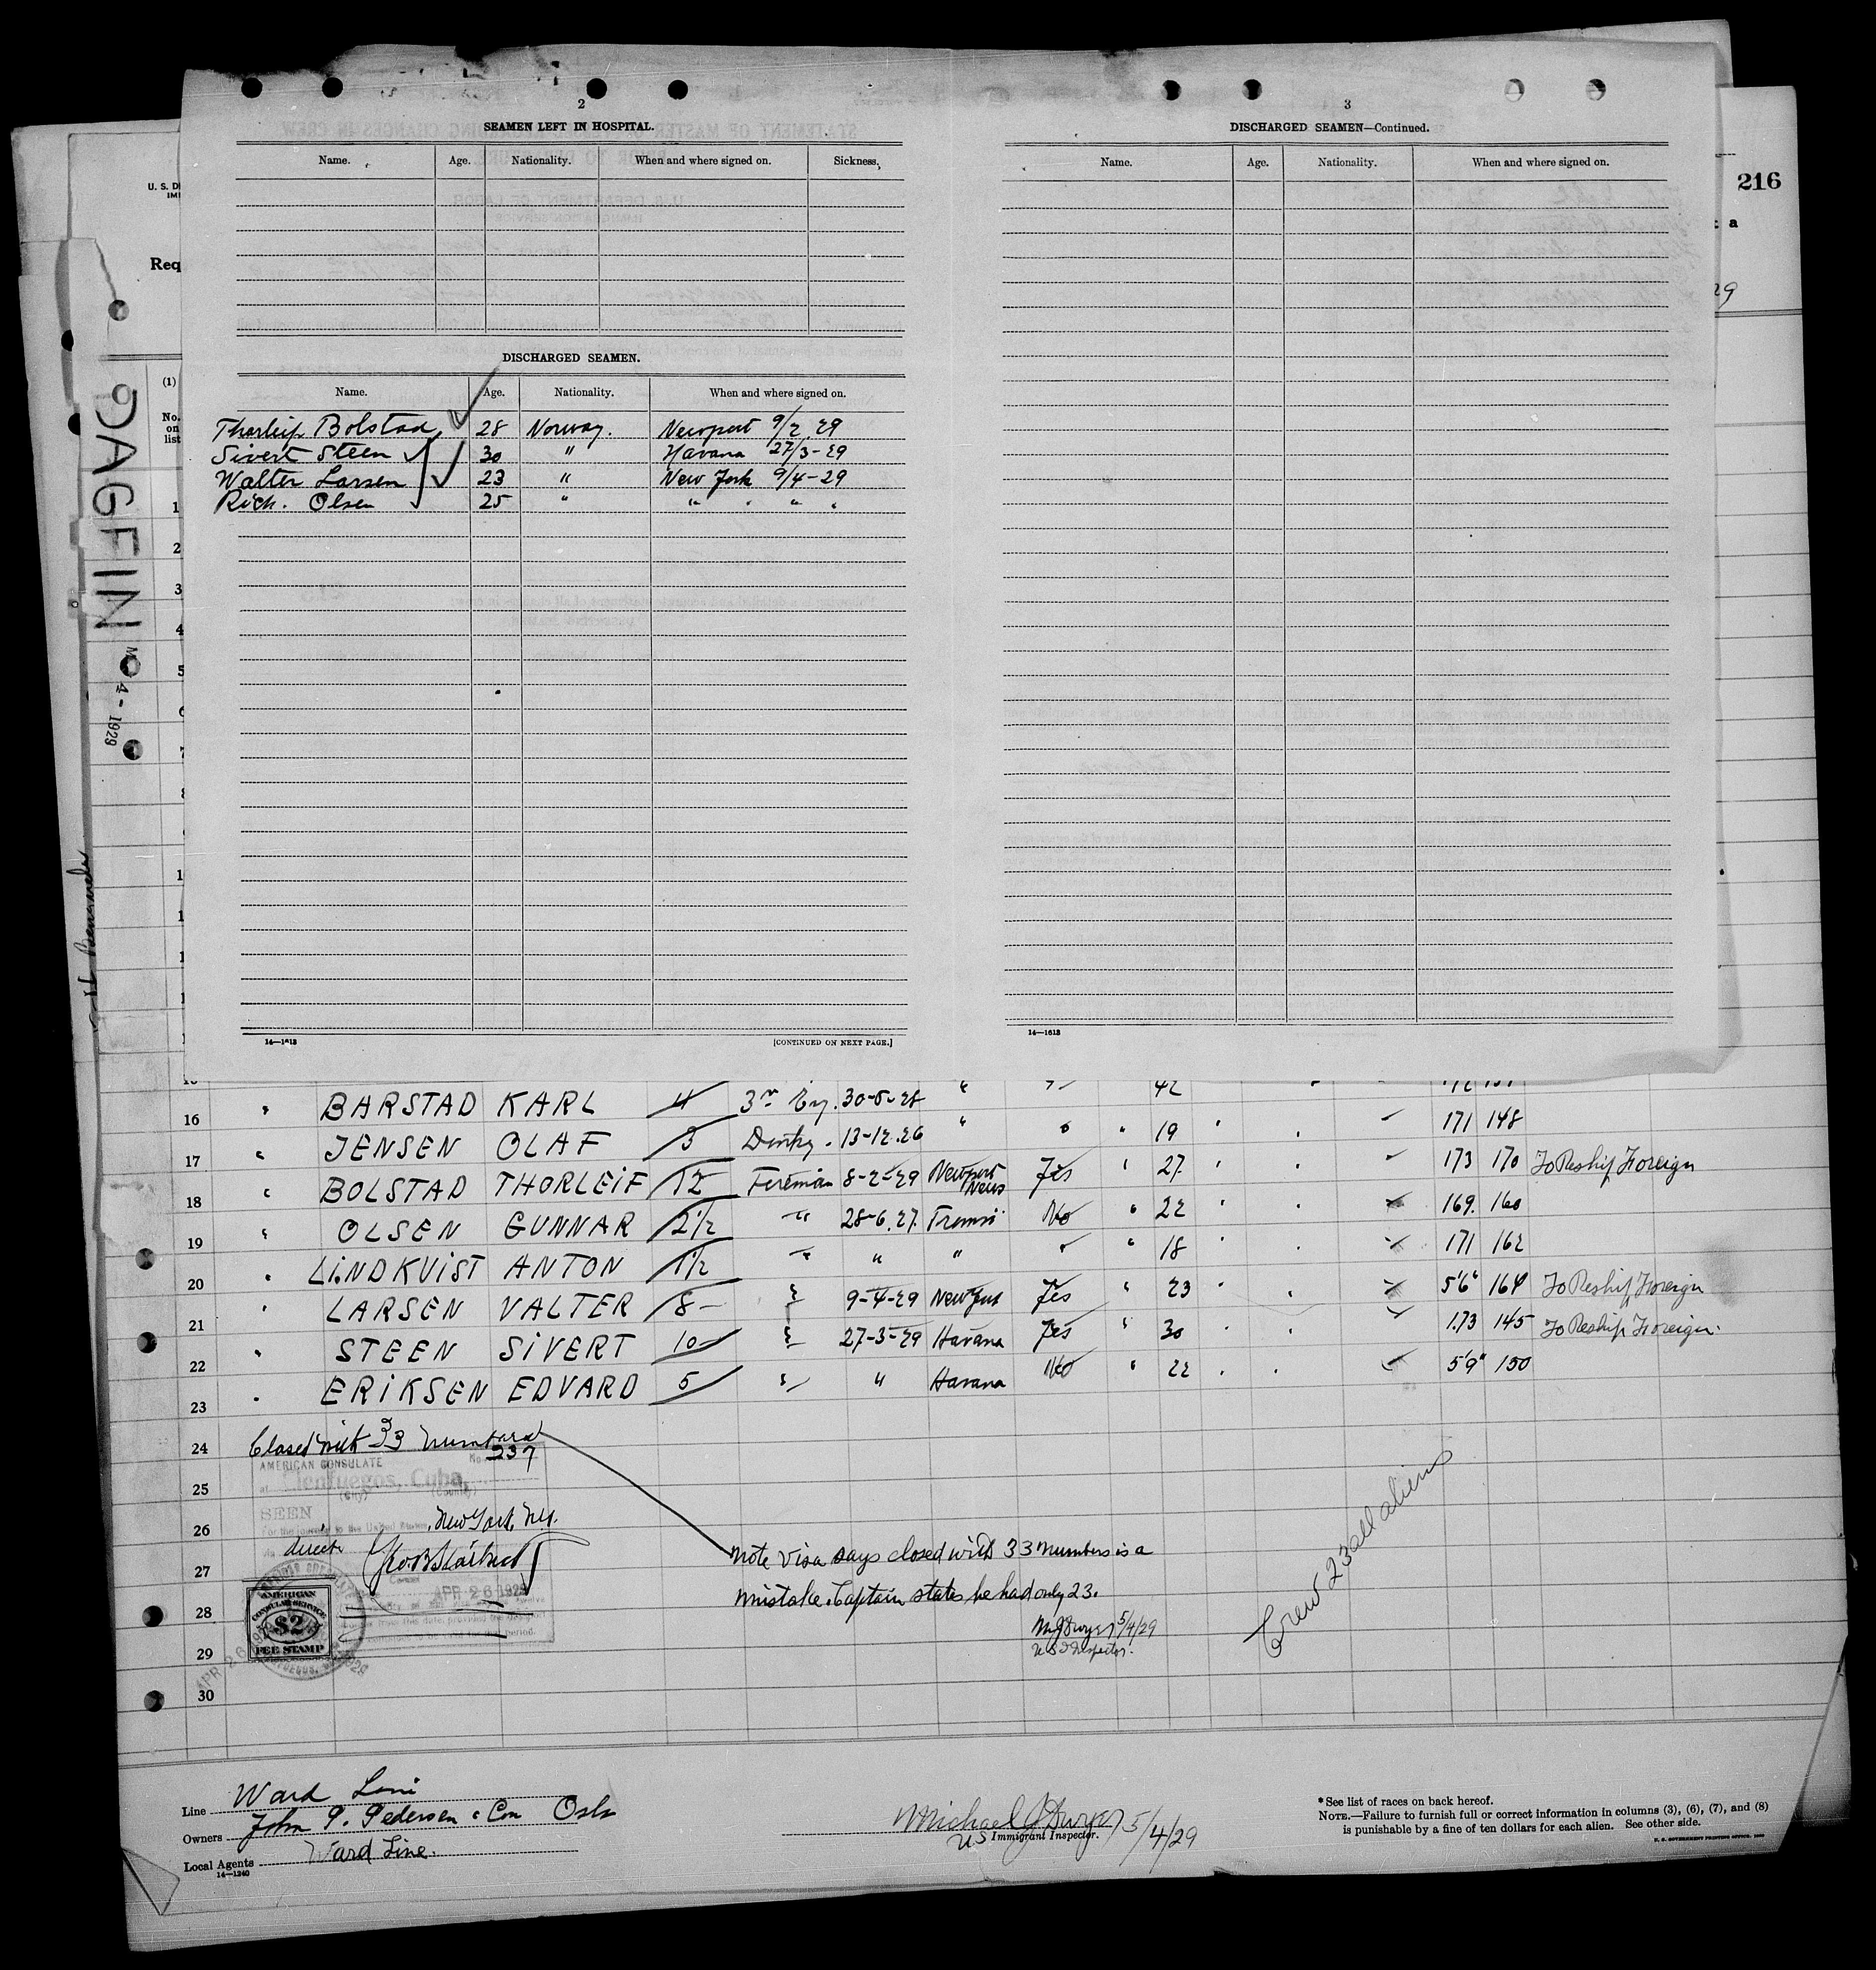 2
SEAMEN LEFT IN HOSPITAL.
Name. Age. Nationality. When and where signed on. Sickness.
DISCHARGED SEAMEN.
Name. Age. Nationality. When and where signed on.
Thorleif Bolstad 28 Norway. Newport 9/2 29
Sivert Steen 30 " Havana 27/3-29
Walter Larsen 23 " New York 9/4-29
Rich. Olsen 25 " " " "
14—1613
[CONTINUED ON NEXT PAGE.]
3
DISCHARGED SEAMEN—Continued.
Name. Age. Nationality. When and where signed on.
14—1613
216
U. S. D
IM
Req
a
29
(1)
No.
on
list
1
2
3
4
5
DAGFIN
4 - 1929
16 " BARSTAD KARL 11 3rd Eng. 30-5-28 " 42
17 " JENSEN OLAF 3 Donky. 13-12-26 " " " 19 " 171 148
18 " BOLSTAD THORLEIF 12 Fireman 8-2-29 Newport News Yes " 27 " 173 170 To Reship Foreign
19 " OLSEN GUNNAR 2 1/2 " 28-6.27. No " 22 " 169. 160
20 " LINDKVIST ANTON 1 1/2 " " " " " 18 " 171 162
21 " LARSEN VALTER 8 " 9-4-29 New York Yes " 23 " 5'6" 164 To Reship Foreign
22 " STEEN SIVERT 10 " 27-3-29 Havana Yes " 30 " 1.73 145 To Reship Foreign.
23 " ERIKSEN EDVARD 5 " " Havana No " 22 " 5'9" 150
24
25
26
27
28
29
30
Closed with 33 numbers
237
AMERICAN CONSULATE
No.
at Cienfuegos, Cuba,
(City) (Country)
SEEN
For the journey to the United States
New York, N.Y.
direct
APR 26 1929
AMERICAN
CONSULAR SERVICE
$2
FEE STAMP
APR 26 1929
Note Visa says closed with 33 numbers is a
mistake. Captain states he had only 23.
M J Dwyer 5/4/29
U S I Inspector.
Crew 23 all aliens
Line Ward Line
Owners John P. Pedersen & Oslo
Local Agents Ward Line.
14—1240
Michael J Dwyer 5/4/29
US Immigrant Inspector.
*See list of races on back hereof.
NOTE.—Failure to furnish full or correct information in columns (3), (6), (7), and (8)
is punishable by a fine of ten dollars for each alien. See other side.
U. S. GOVERNMENT PRINTING OFFICE